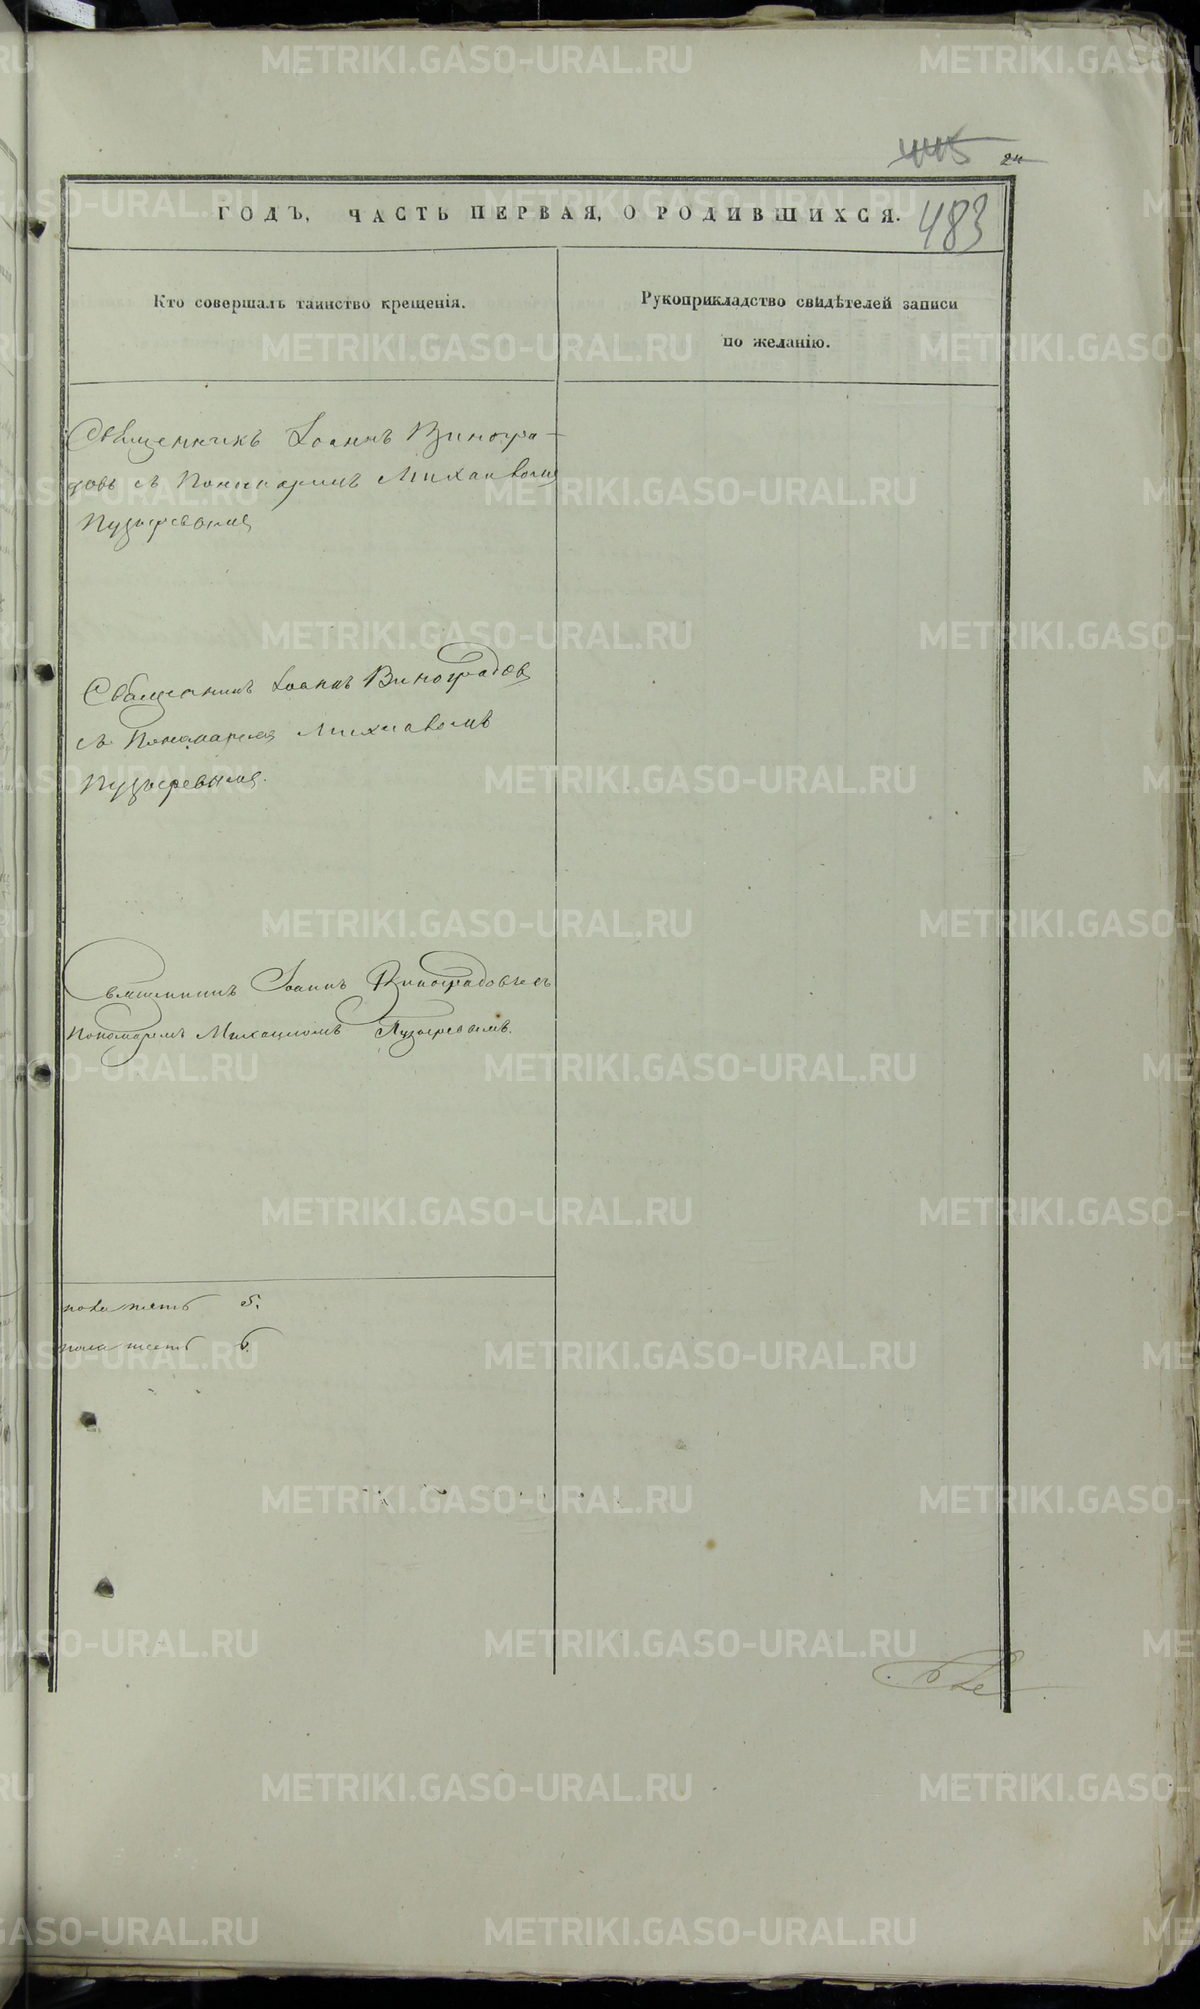 445 24
ГОДЪ, ЧАСТЬ ПЕРВАЯ, О РОДИВШИХСЯ.
483
Кто совершалъ таинство крещенія.
Рукоприкладство свидѣтелей записи
по желанію.
Священникъ Іоаннъ Виногра-
довъ съ Пономаремъ Михаиломъ
Пузыревымъ
Священникъ Іоаннъ Виноградов
съ Пономаремъ Михаиломъ
Пузыревымъ.
Священникъ Іоаннъ Виноградовъ съ
Пономаремъ Михаиломъ Пузыревымъ.
пола 5.
пола 6.
METRIKI.GASO-URAL.RU